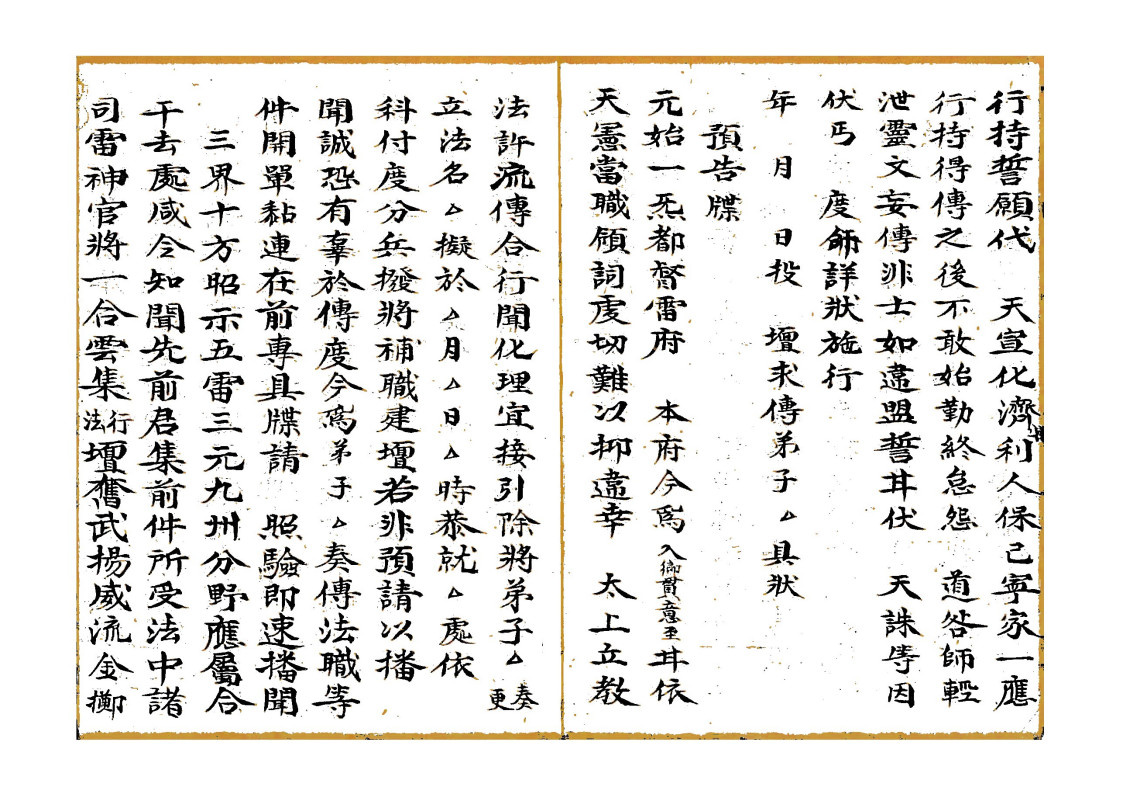 行持誓願代　天宣化濟利人保己寧家一應
行持得傳之後不敢始勤終怠怨　道咎師輕
泄靈文妄傳非士如違盟誓甘伏　天誅等因
伏丐　度師詳狀施行
年　月　日投　壇求傳弟子△具狀
預告牒
元始一炁都督雷府　本府今為入御貫意至甘依
天憲當職頎詞虔切難以抑違幸　太上立教
法許流傳合行聞化理宜接引除將弟子△奏更
立法名△擬於△月△日△時恭就△處依
科付度分兵撥將補職建壇若非預請以播
聞誠恐有辜於傳度今為弟子△奏傳法職等
件開單黏連在前專具牒請　照驗即速播聞
三界十方昭示五雷三元九州分野應屬合
干去處咸令知聞先前君集前件所受法中諸
司雷神官將一合雲集行法壇奮武揚威流金擲